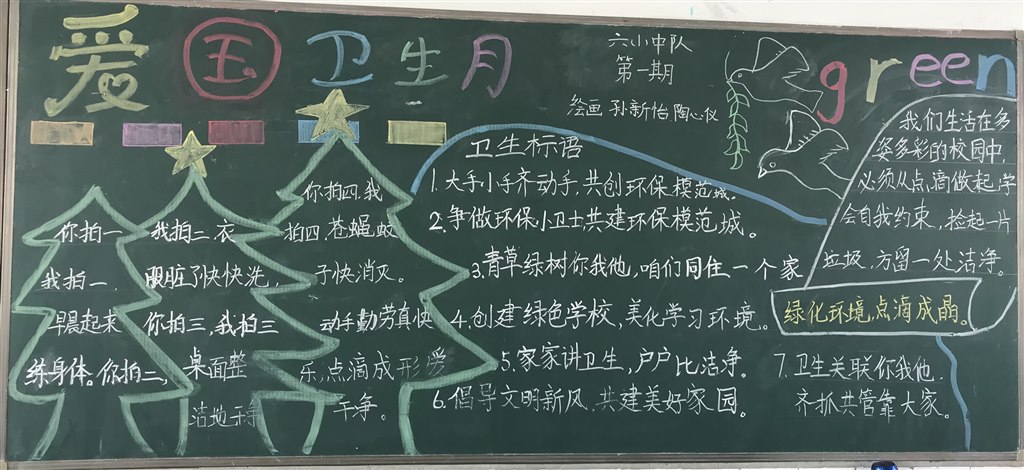 爱国卫生月
六小中队
第一期
绘画 孙新怡 陶心仪
green
你拍一
我拍一,
早晨起来
练身体。你拍二,
我拍二,衣
服脏了快快洗,
你拍三,我拍三
桌面整
洁地干净
你拍四,我
拍四,苍蝇蚊
子快消灭。
动手勤劳真快
乐,点滴成形学
干净。
卫生标语
1.大手小手齐动手,共创环保模范城。
2.争做环保小卫士,共建环保模范城。
3.青草绿树你我他,咱们同住一个家
4.创建绿色学校,美化学习环境。
5.家家讲卫生,户户比洁净。
6.倡导文明新风,共建美好家园。
7.卫生关联你我他,
齐抓共管靠大家。
我们生活在多
姿多彩的校园中,
必须从点滴做起,学
会自我约束,捡起一片
垃圾,方留一处洁净。
绿化环境,点滴成晶。